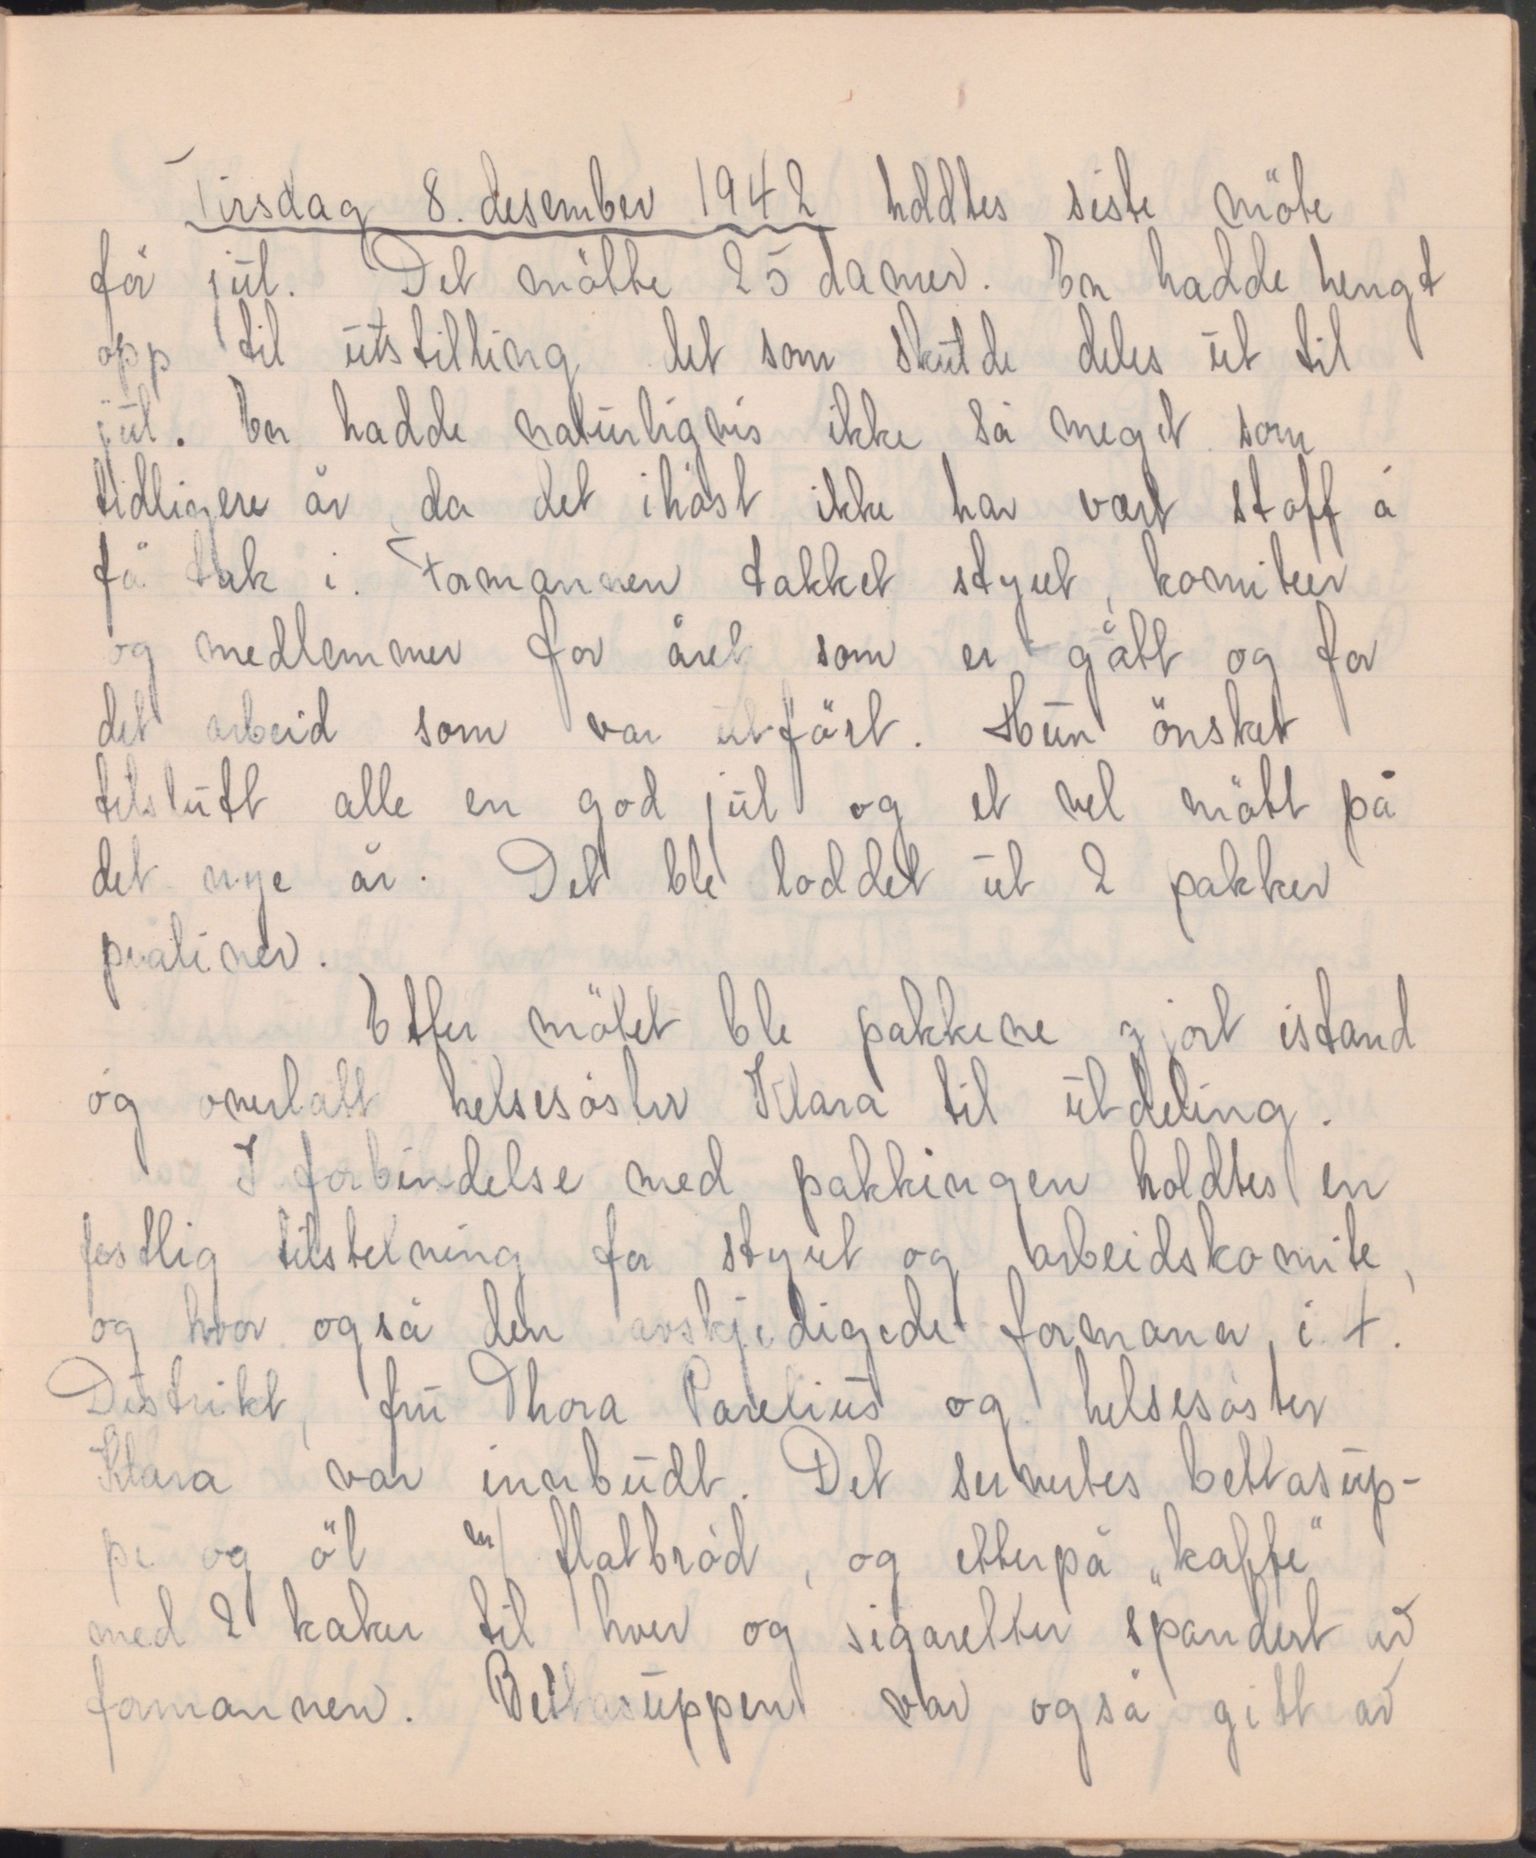 Tirsdag 8. desember 1942 holdtes siste möte
för jul. Det mötte 25 damer. En hadde hengt
opp til utstilling det som skulde deles ut til
jul. En hadde naturligvis ikke så meget som
tidligere år, da det ihöst ikke har vært stoff å
få tak i. Formannen takket styret, komiteer
og medlemmer for året som er gått og for
det arbeid som var utfört. Hun önsket
tilslutt alle en god jul og et vel mött på
det nye år. Det ble loddet ut 2 pakker
praliner.
Etter mötet ble pakkene gjort istand
og overlatt helsesöster Klara til utdeling.
I forbindelse med pakkingen holdtes en
festlig tilstelning for styret og arbeidskomite,
og hvor også den avskjedigede formann i 4.
Distrikt, fru Thora Parelius og helsesöster
Klara var innbudt. Det servertes bettasup-
pe og öl m/ flatbröd, og etterpå „kaffe"
med 2 kaker til hver og sigaretter spandert av
formannen. Bettasuppen var også gitt av